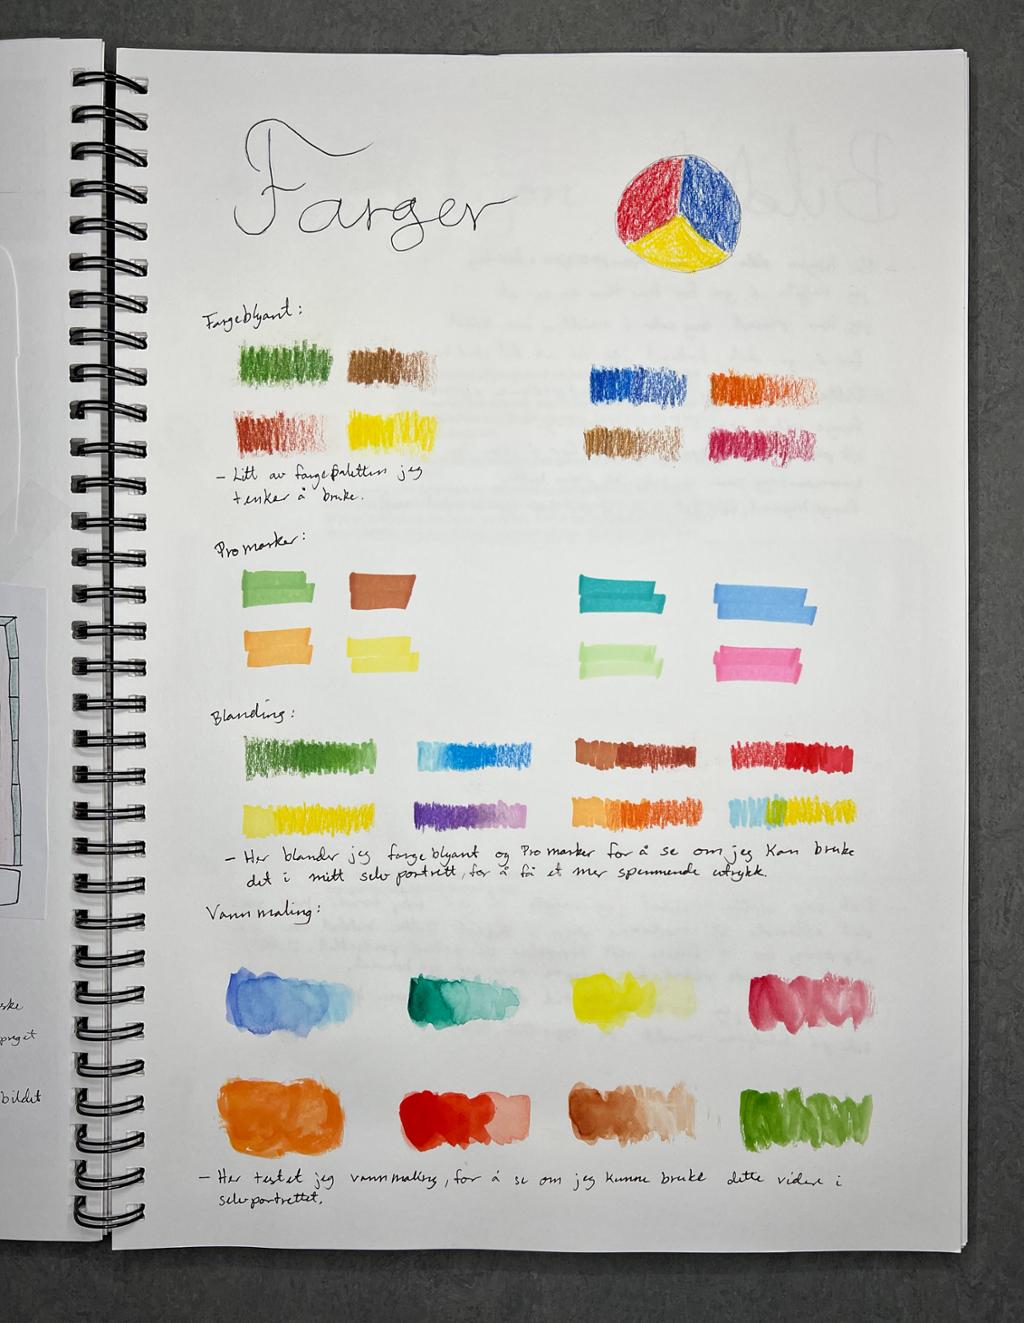 Farger
Fargeblyant:
- Litt av fargepaletten jeg
tenker å bruke.
Promarker:
Blanding:
- Her blander jeg fargeblyant og Promarker for å se om jeg kan bruke
det i mitt selvportrett, for å få et mer spennende utrykk.
Vannmaling:
- Her testet jeg vannmaling, for å se om jeg kunne bruke dette videre i
selvportrettet.
bildet